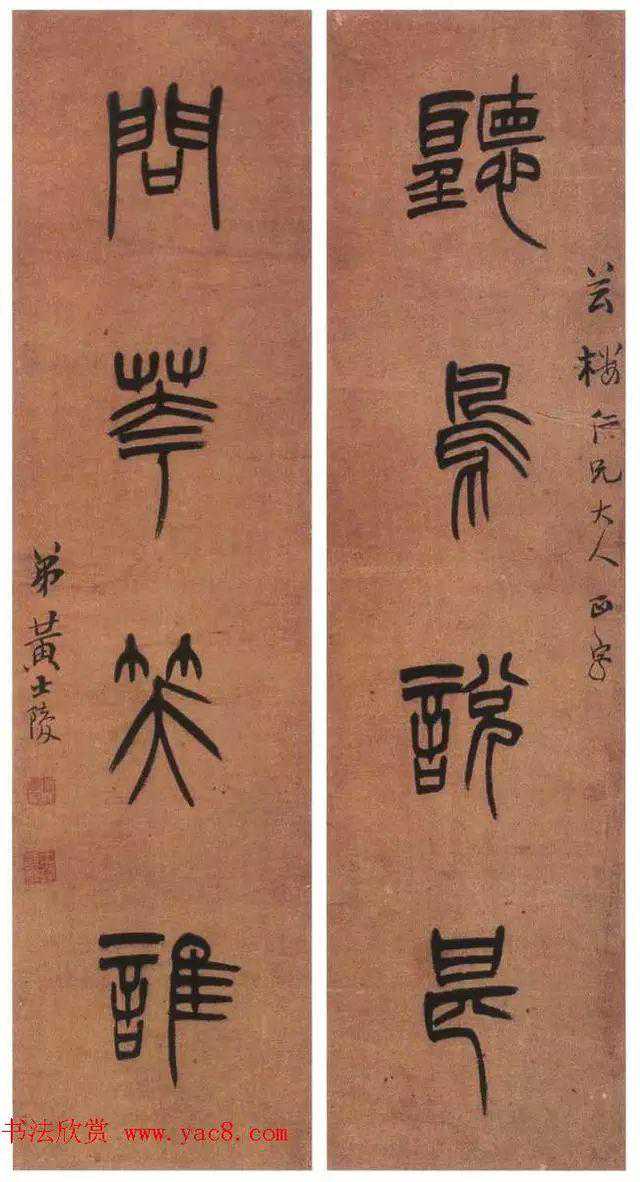 芸樓仁兄大人正字
聽鳥說甚
問華笑誰
弟黃士陵
书法欣赏 www.yac8.com